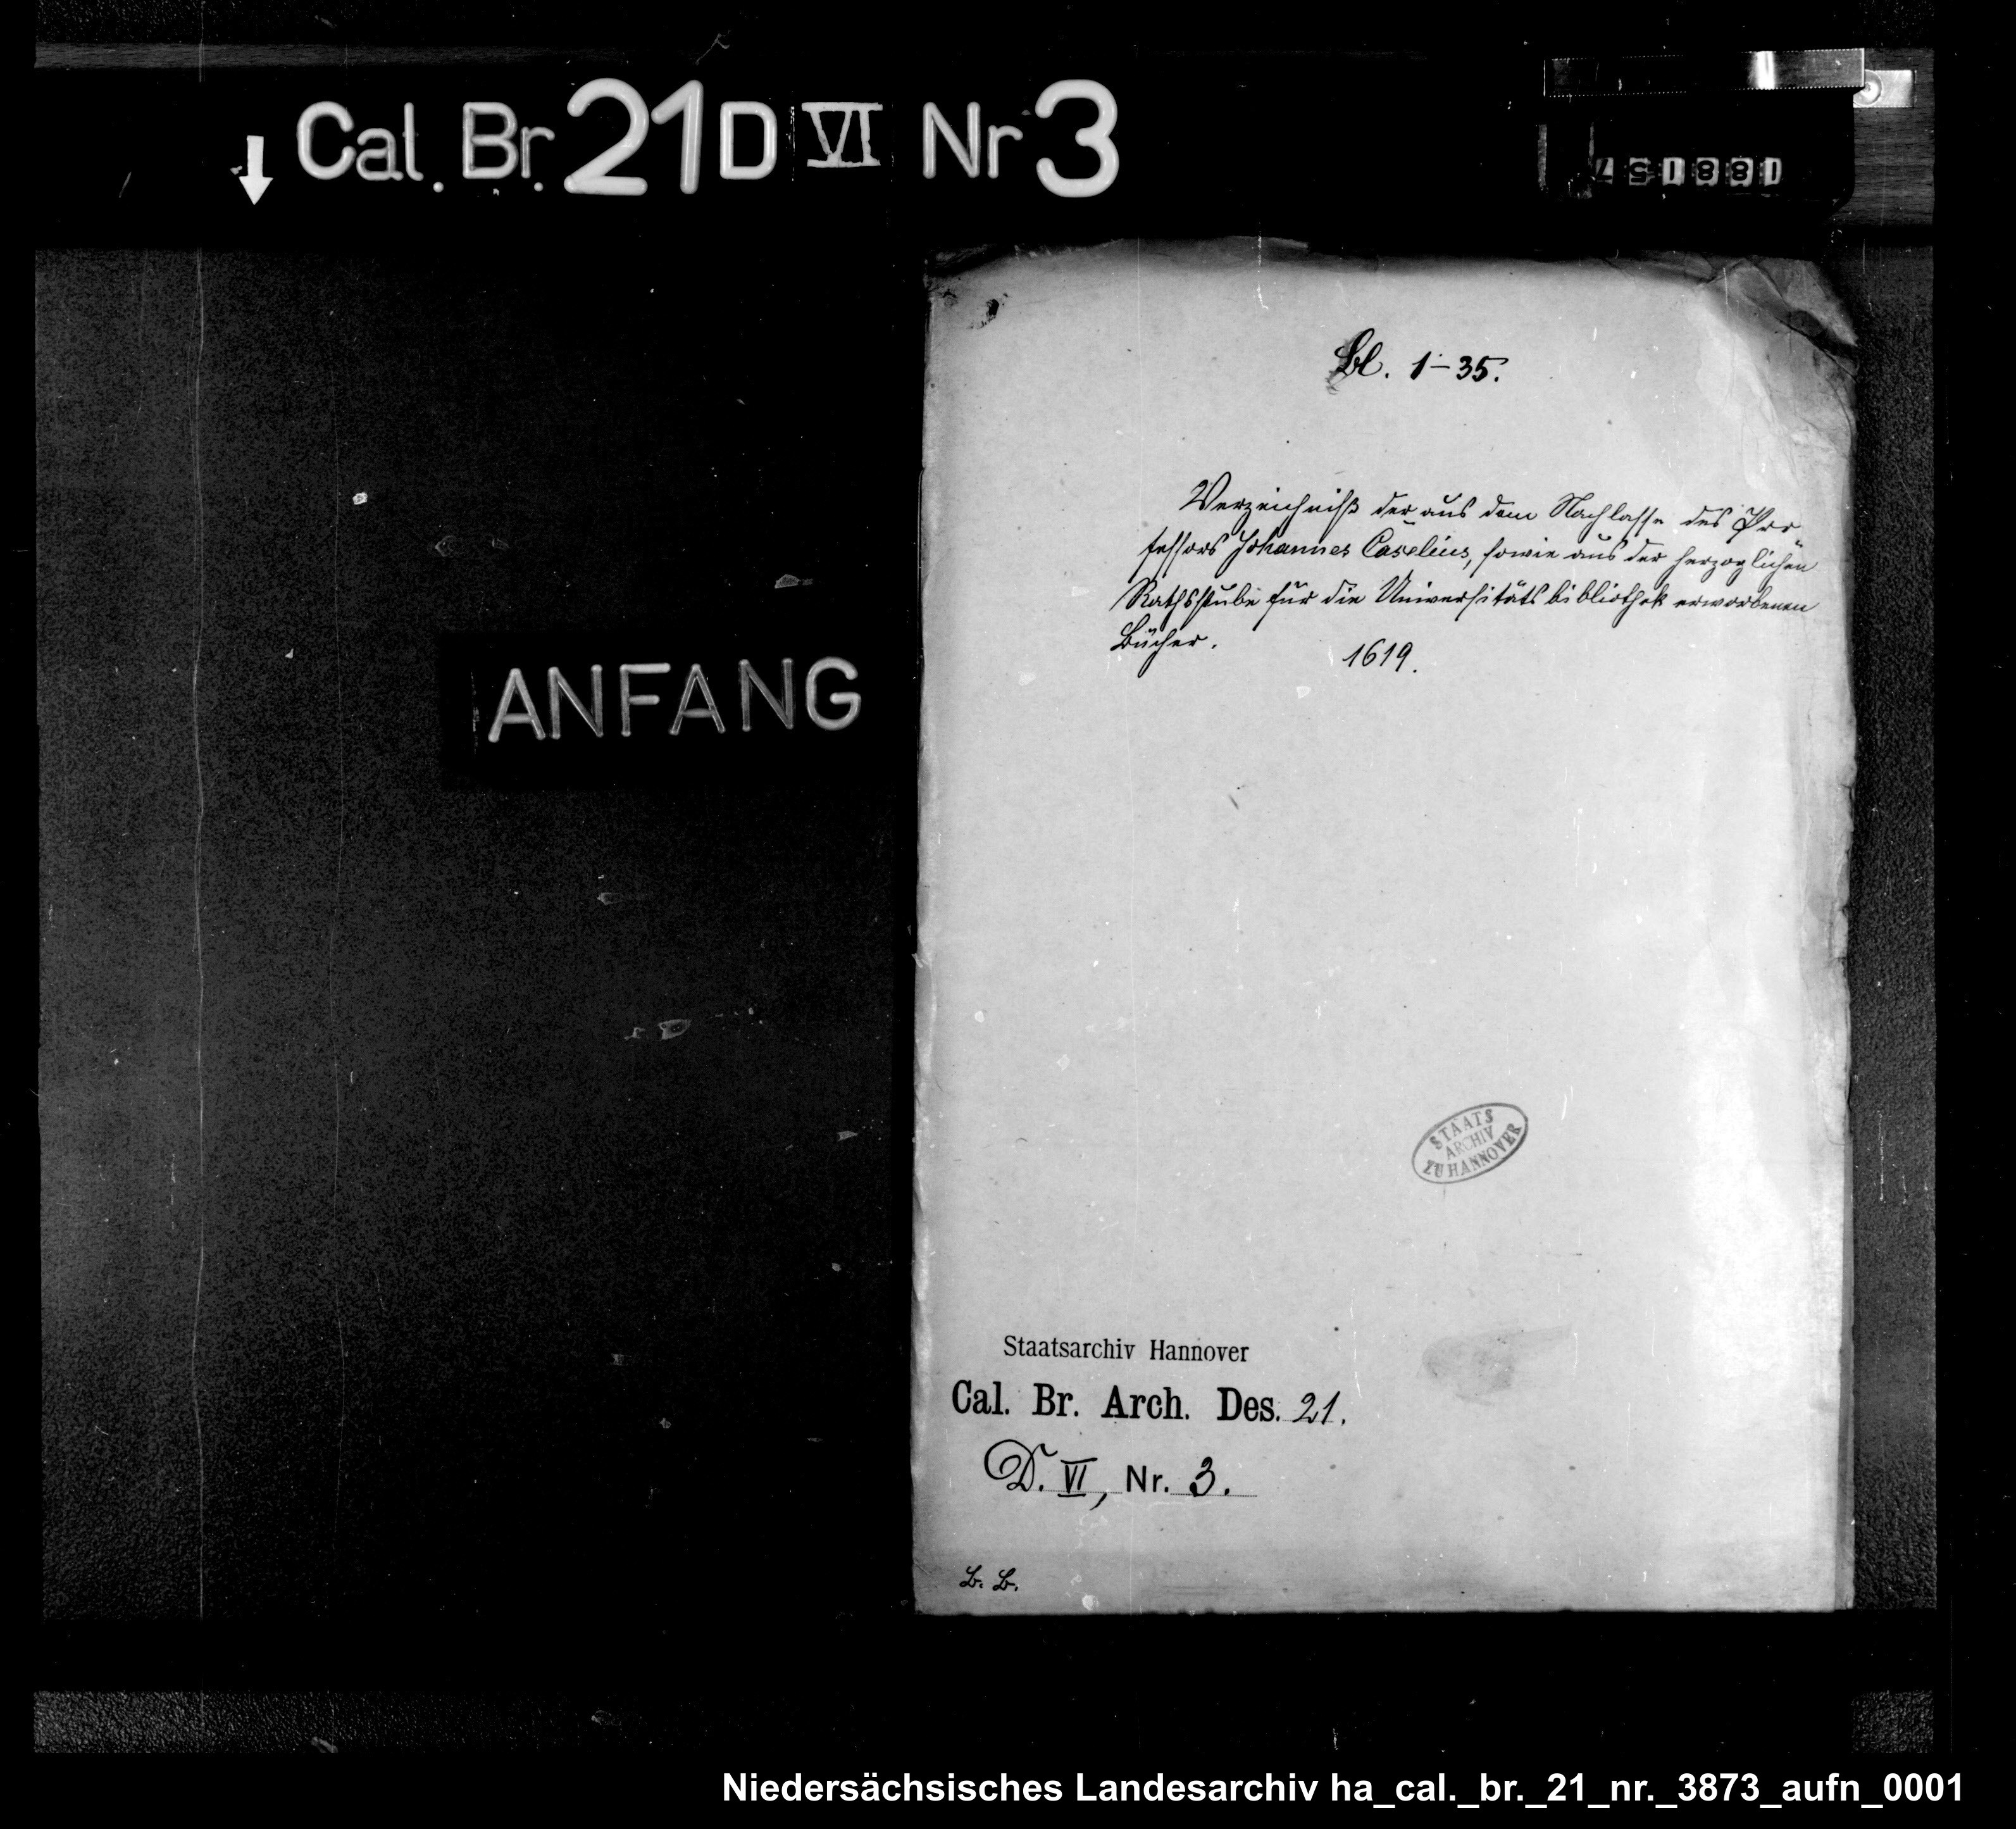 ↓ Cal. Br. 21 D VI Nr 3
188157
Bl. 1–35.
Verzeichniß der aus dem Nachlasse des Pro-
fessors Johannes Caselius, sowie aus der herzoglichen
Rathsstube für die Universitätsbibliothek erworbenen
Bücher.
1619.
ANFANG
STAATS
ARCHIV
ZU HANNOVER
Staatsarchiv Hannover
Cal. Br. Arch. Des. 21.
D. VI, Nr. 3.
B. B.
Niedersächsisches Landesarchiv ha_cal._br._21_nr._3873_aufn_0001